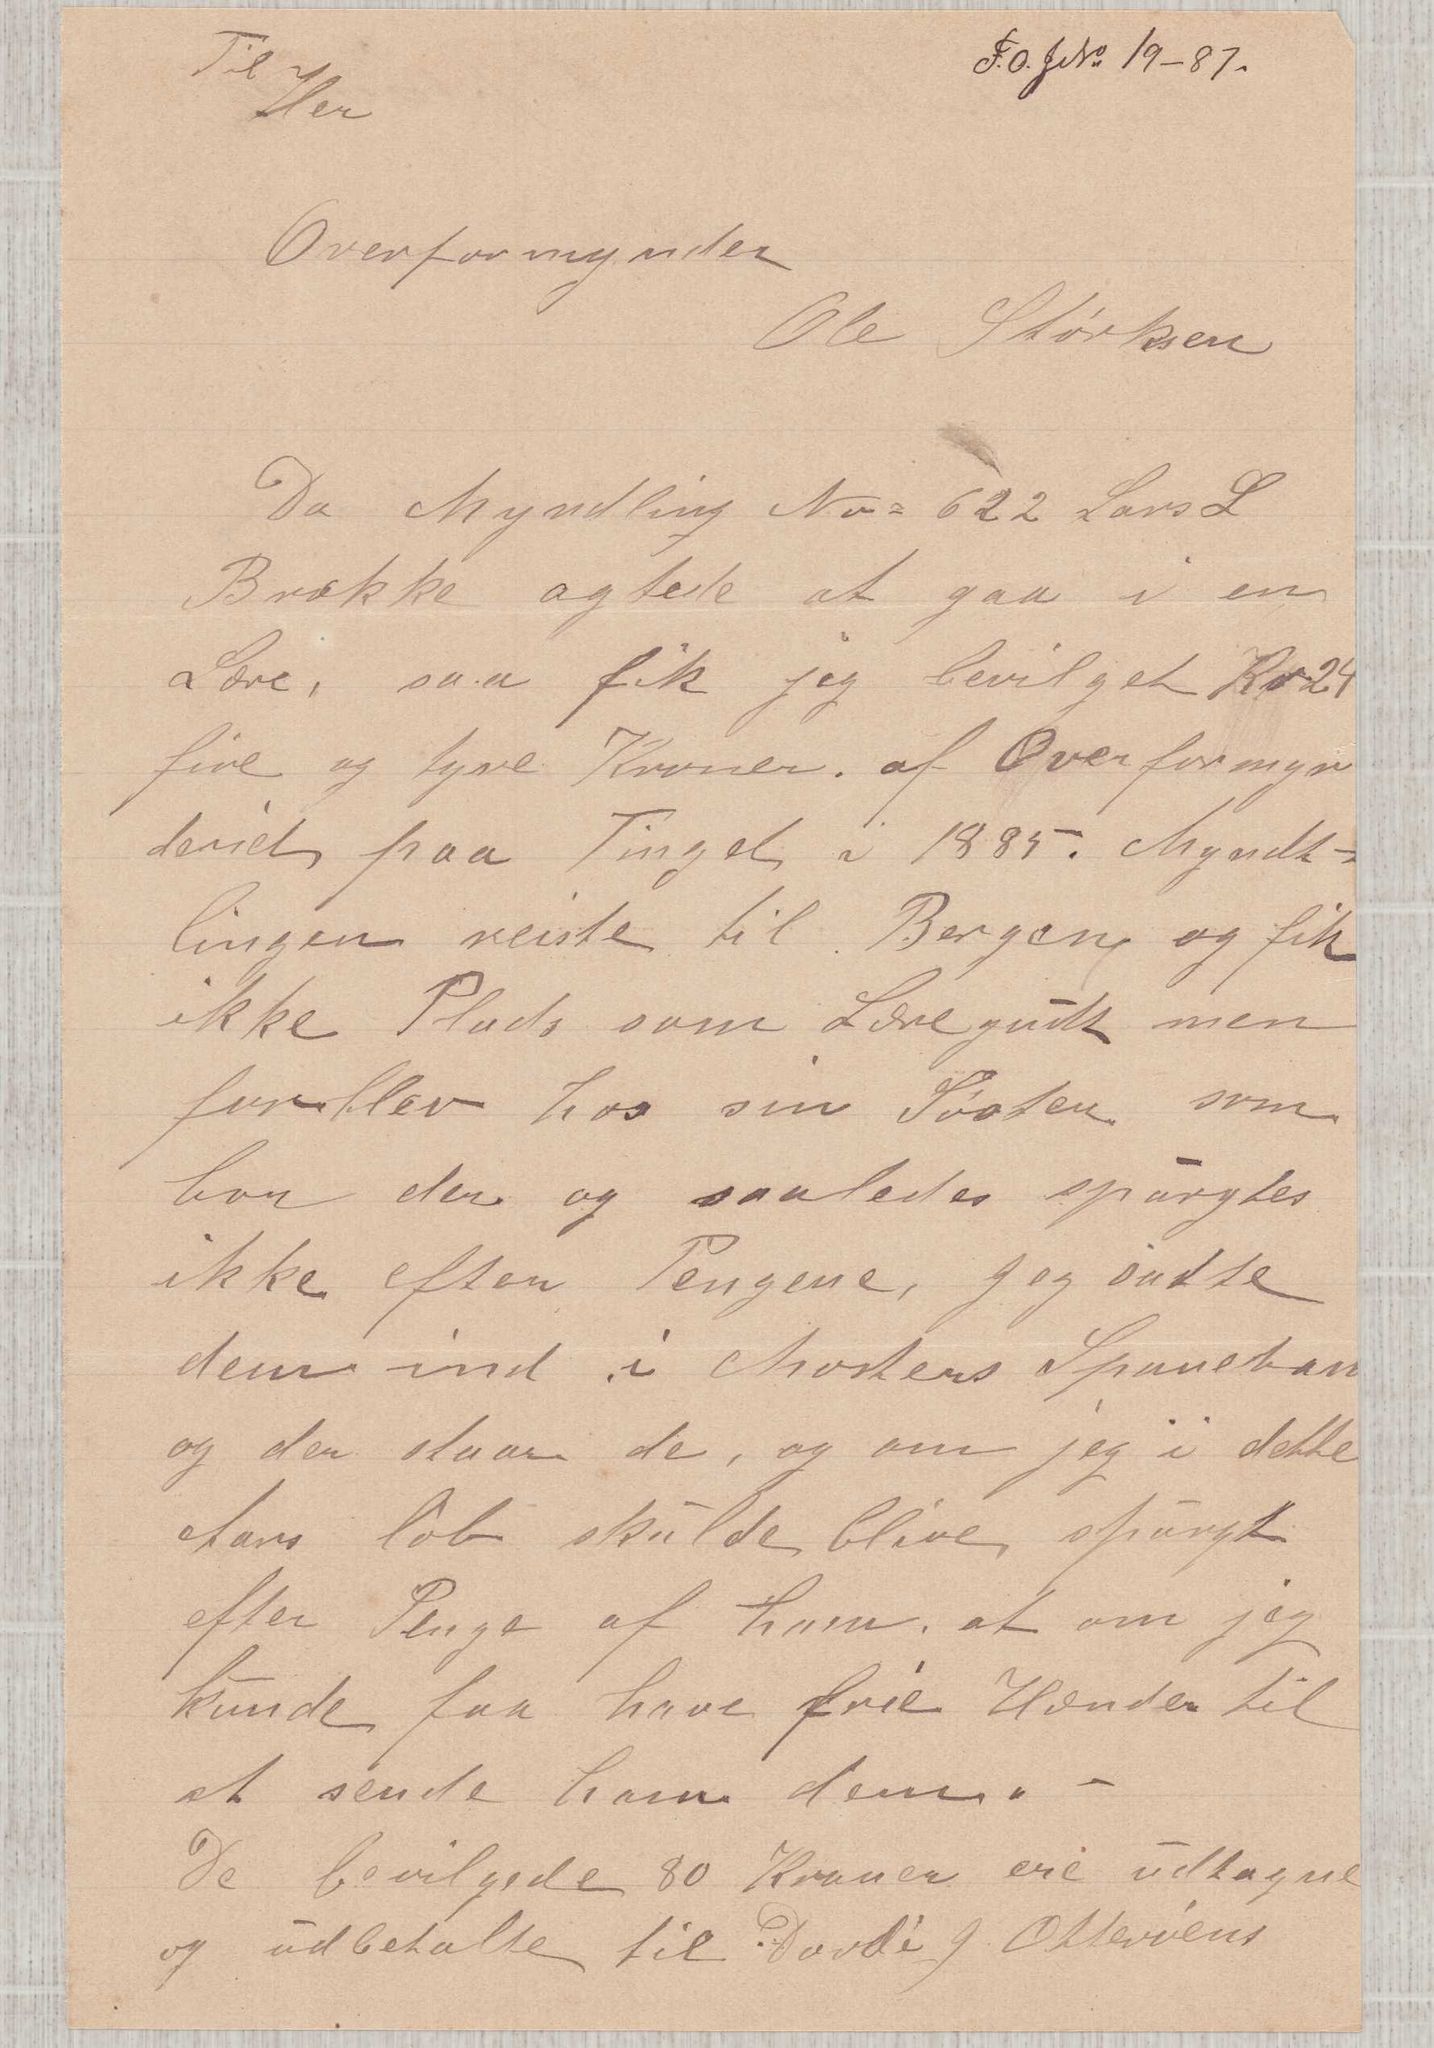 Til
Her
F.O. JNo 19-87.
Overformynder
Ole Störksen
Da Myndling No= 622 Lars L
Brække agtede at gaa i en
Lære, saa fik jeg bevilget Kr 24
fire og tyve Kroner. af Overformyn
deriet paa Tinget i 1885. Myndt-
lingen reiste til Bergen og fik
ikke Plads som Læregudt men
forblev hos sin Söster som
bor der og saaledes spurgtes
ikke efter Pengene, Jeg satte
dem ind i Mosters Spareban
og der staar de, og om jeg i dette
Aars löb skulde blive spurgt
efter Penge af ham. at om jeg
kunde faa have frie Hænder til
at sende ham dem. -
De bevilgede 80 Kroner ere udtagne
og udbetalte til Dordi J Otteröens